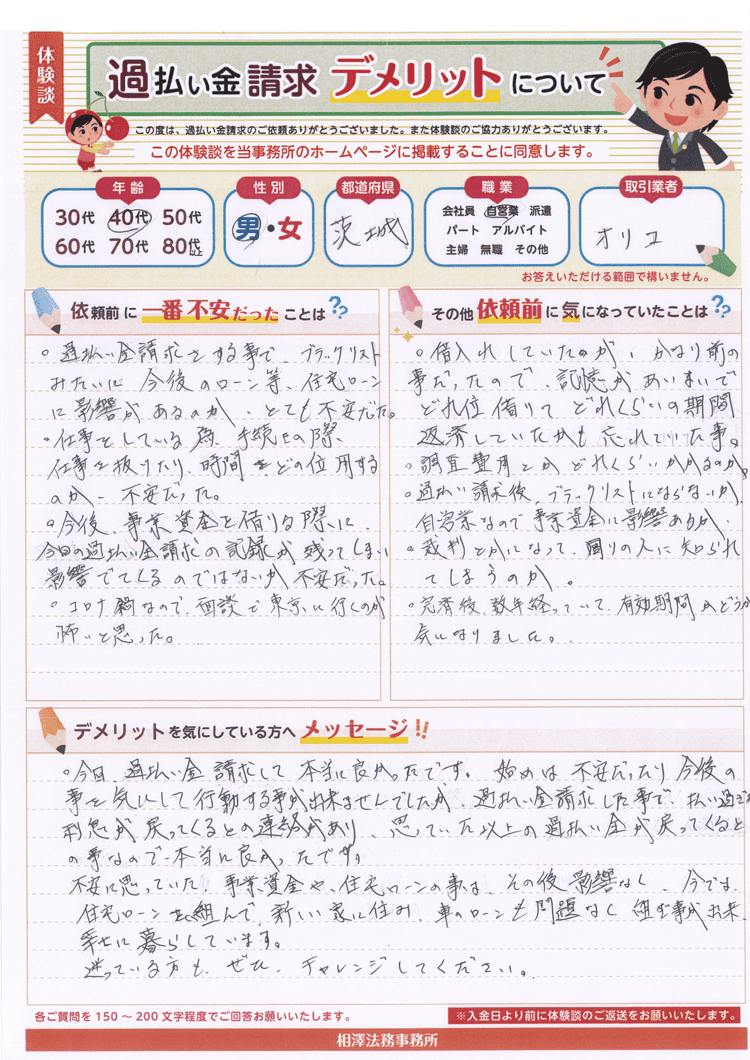 体験談
過払い金請求 デメリットについて
この度は、過払い金請求のご依頼ありがとうございました。また体験談のご協力ありがとうございます。
この体験談を当事務所のホームページに掲載することに同意します。
年齢
30代 40代 50代
60代 70代 80代以上
性別
男・女
都道府県
茨城
職業
会社員 自営業 派遣
パート アルバイト
主婦 無職 その他
取引業者
オリコ
お答えいただける範囲で構いません。
依頼前に一番不安だったことは??
。過払い金請求をする事で、ブラックリスト
みたいに今後のローン等、住宅ローン
に影響があるのか、とても不安だた。
・仕事をしている為、手続きの際、
仕事を抜けたり、時間をどの位用する
のか、不安だった。
。今後、事業資金を借りる際に、
今回の過払い金請求の記録が残ってしまい
影響でてくるのではないか不安だった。
。コロナ禍なので、面談で東京に行くのが
怖いと思った。
その他依頼前に気になっていたことは??
。借入れしていたのが、かなり前の
事だったので、記憶があいまいで
どれ位借りて どれくらいの期間
返済していたかも忘れていた事。
。調査費用とかどれくらいかかるのか。
。過払い請求後、ブラックリストにならないか、
自営業なので事業資金に影響あるか、
。裁判とかになって、周りの人に知られ
てしまうのか。
。完済後、数年経っていて、有効期間かどうか
気になりました。
デメリットを気にしている方へメッセージ!!
。今回、過払い金請求して本当に良かったです。始めは不安だったり今後の
事を気にして行動する事が出来ませんでしたが、過払い金請求した事で、払い過ぎた
利息が戻ってくるとの連絡があり、思ていた以上の過払い金が戻ってくると
の事なので本当に良かったです。
不安に思っていた、事業資金や、住宅ローンの事は、その後影響なく、今では、
住宅ローンを組んで、新しい家に住み、車のローンも問題なく組む事が出来、
幸せに暮らしています。
迷っている方も、ぜひ、チャレンジしてください。
各ご質問を150～200文字程度でご回答お願いいたします。
※入金日より前に体験談のご返送をお願いいたします。
相澤法務事務所